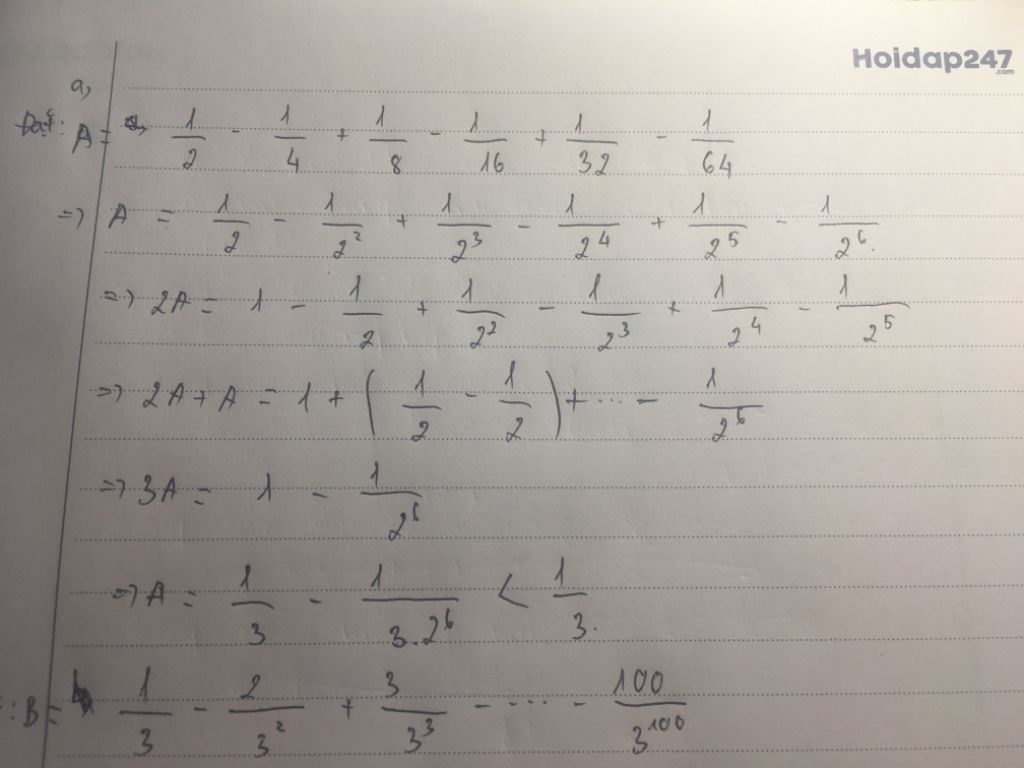 Hoidap247
.com
a,
Đặt: A = 1/2 - 1/4 + 1/8 - 1/16 + 1/32 - 1/64
=> A = 1/2 - 1/2² + 1/2³ - 1/2⁴ + 1/2⁵ - 1/2⁶.
=> 2A = 1 - 1/2 + 1/2² - 1/2³ + 1/2⁴ - 1/2⁵
=> 2A + A = 1 + (1/2 - 1/2) + ... - 1/2⁶
=> 3A = 1 - 1/2⁶
=> A = 1/3 - 1/3.2⁶ < 1/3.
: B = 1/3 - 2/3² + 3/3³ - .... - 100/3¹⁰⁰